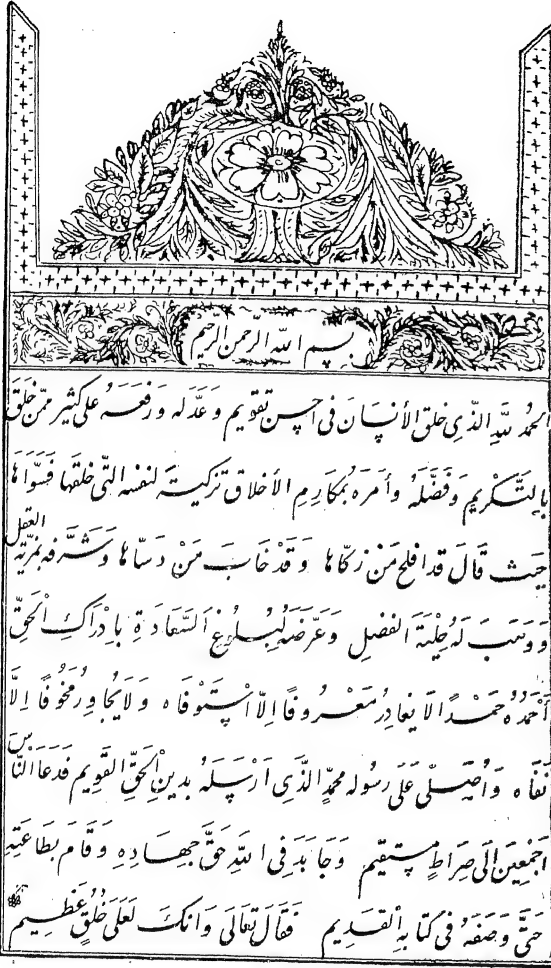 بسم الله الرحمن الرحيم
الحمد لله الذي خلق الأنسان في احسن تقويم وعدله ورفعه على كثير ممن خلق
بالتكريم وفضله وأمره بمكارم الأخلاق تزكية لنفسه التي خلقها فسواها
حيث قال قد افلح من زكاها وقد خاب من دساها وشرفه بمزية العقل
ووهب له حلية الفضل وعرضه لبلوغ السعادة بادراك الحق
أحمده حمدا لا يغادر معروفا إلا استوفاه ولا يجاور مخوفا إلا
نفاه وأصلي على رسوله محمد الذي ارسله بدين الحق القويم فدعا الناس
اجمعين الى صراط مستقيم وجاهد في الله حق جهاده وقام بطاعته
حتى وصفه في كتابه القديم فقال تعالى وانك لعلى خلق عظيم